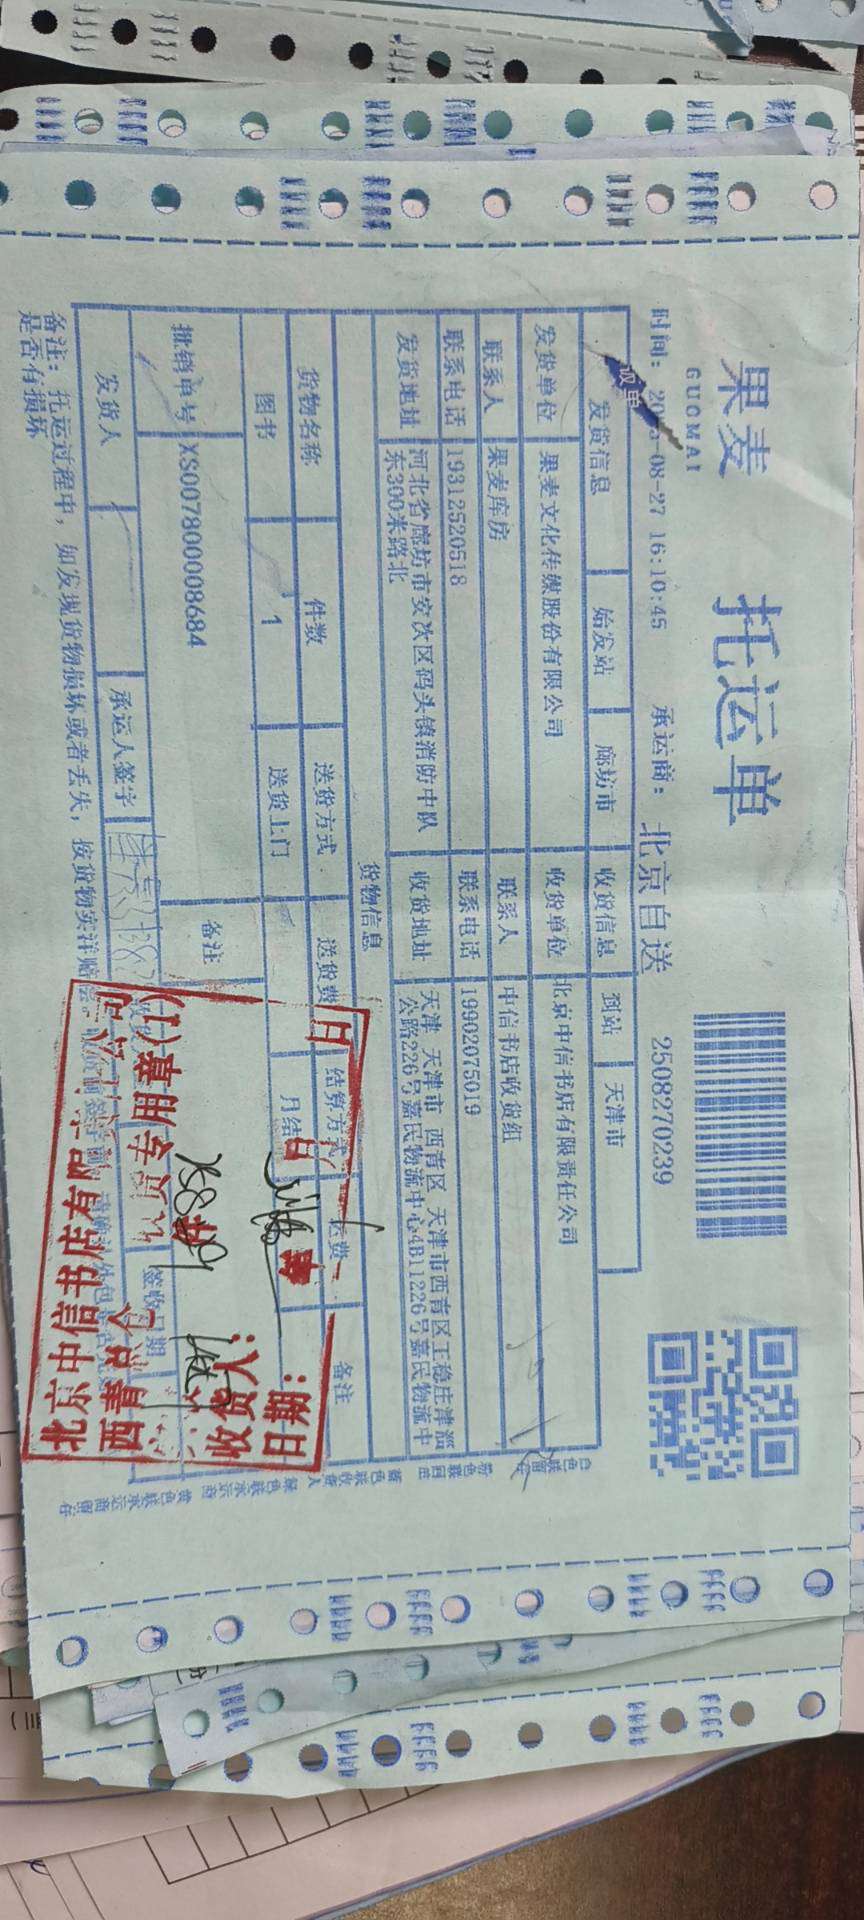 果麦
GUOMAI
托运单
时间: 20 5-08-27 16:10:45 承运商: 北京自送 2508270239
发货信息 始发站 廊坊市 收货信息 到站 天津市
发货单位 果麦文化传媒股份有限公司 收货单位 北京中信书店有限责任公司
联系人 果麦库房 联系人 中信书店收货组
联系电话 19312520518 联系电话 19902075019
发货地址 河北省廊坊市安次区码头镇消防中队东300米路北 收货地址 天津 天津市 西青区 天津市西青区王稳庄津淄公路226号嘉民物流中心4B11226号嘉民物流中
货物信息
货物名称 件数 送货方式 送货费 结算方式 运费 备注
图书 1 送货上门 月结
批销单号 XS007800008684 备注
发货人 承运人签字 签收日期
备注: 托运过程中, 如发现货物损坏或者丢失, 按货物实洋赔
是否有损坏
北京中信书店有限
西青 仓 收货专用章(1)
收货人:
日期: 年 月 日
白色联留存 粉色联回单 蓝色联收货人 绿色联承运商 黄色联承运商留存